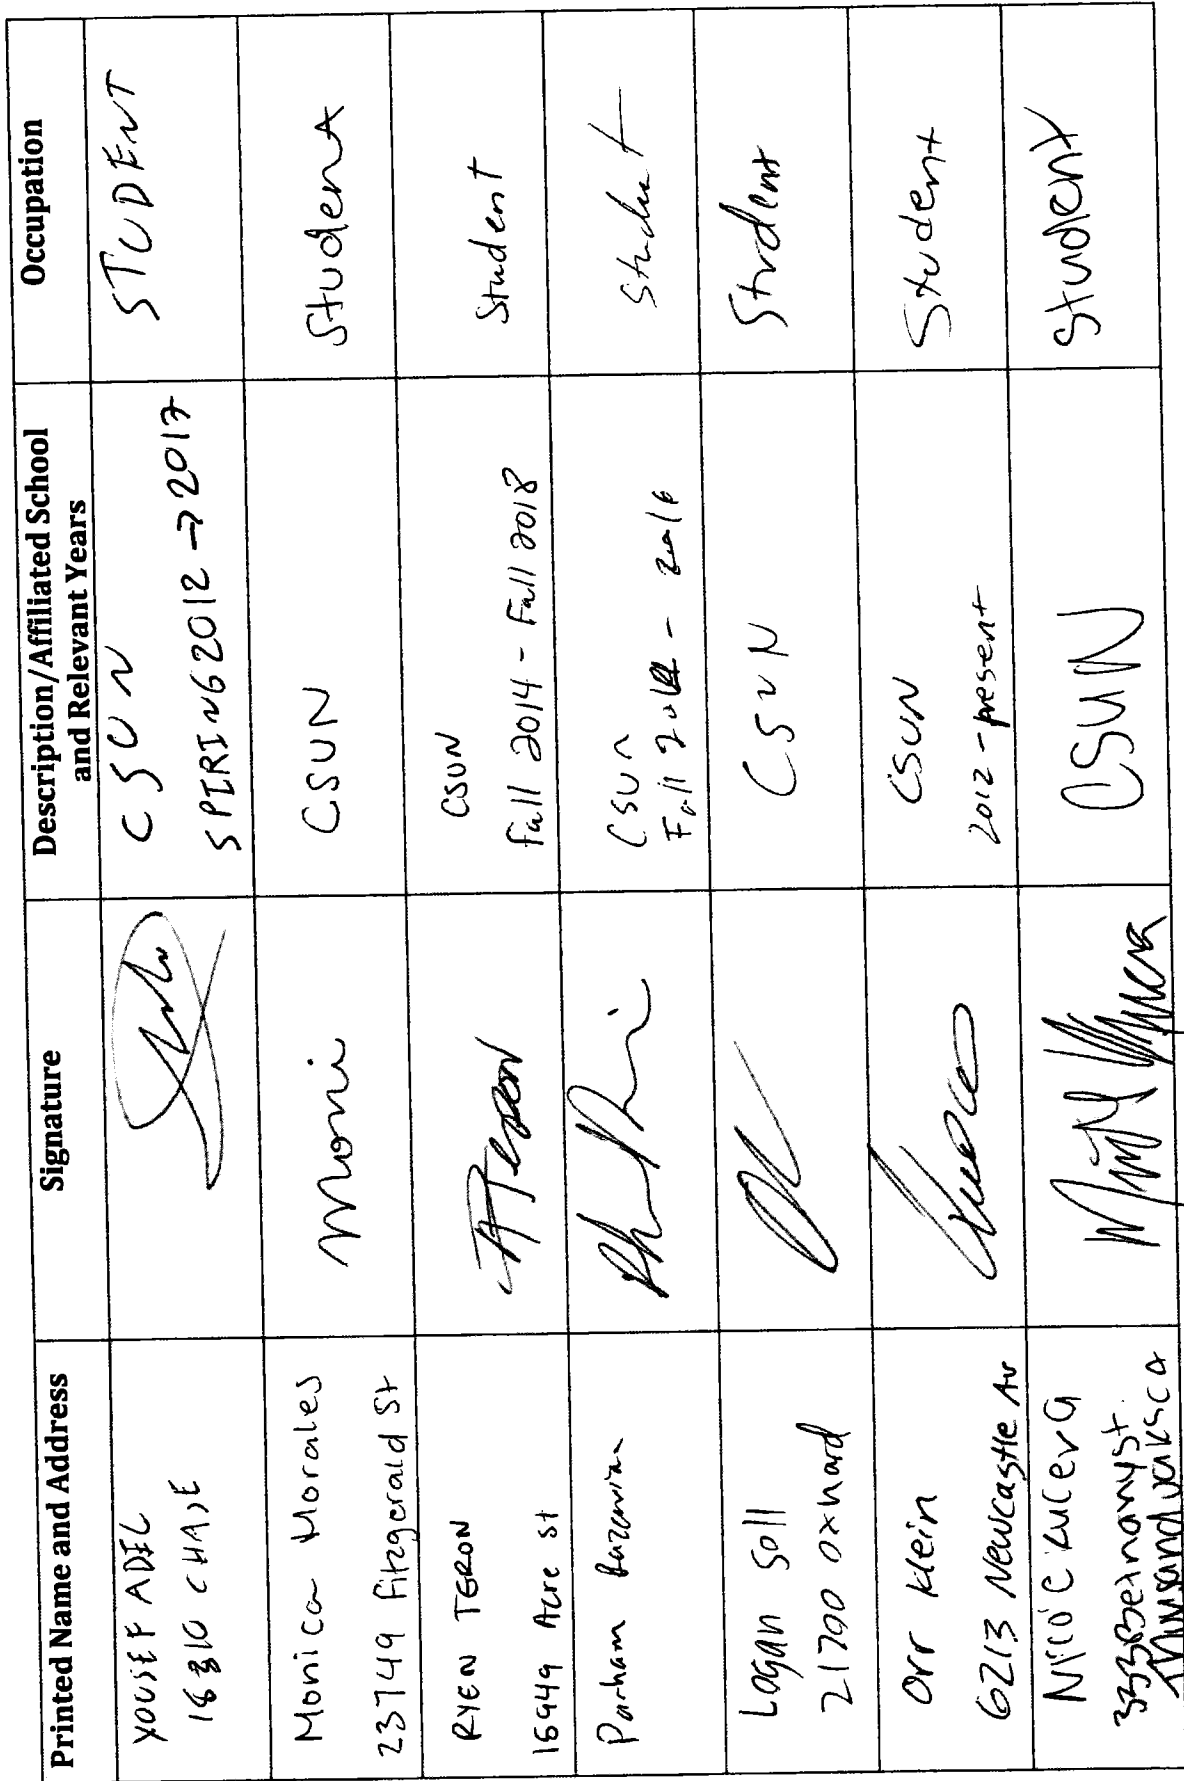 Printed Name and Address
Signature
Description/Affiliated School
and Relevant Years
Occupation
YOUSEF ADEL
18310 CHASE
CSUN
SPIRING 2012 → 2017
STUDENT
Monica Morales
23749 Fitzgerald St
Moni
CSUN
Student
RYEN TERON
16949 Acre st
CSUN
Fall 2014 - Fall 2018
Student
Parham
CSUN
Fall - 2016
Student
Logan Soll
21700 oxnard
CSUN
Student
Orr Klein
6213 Newcastle Av
CSUN
2012 - present
Student
Kucera
CSUN
Student